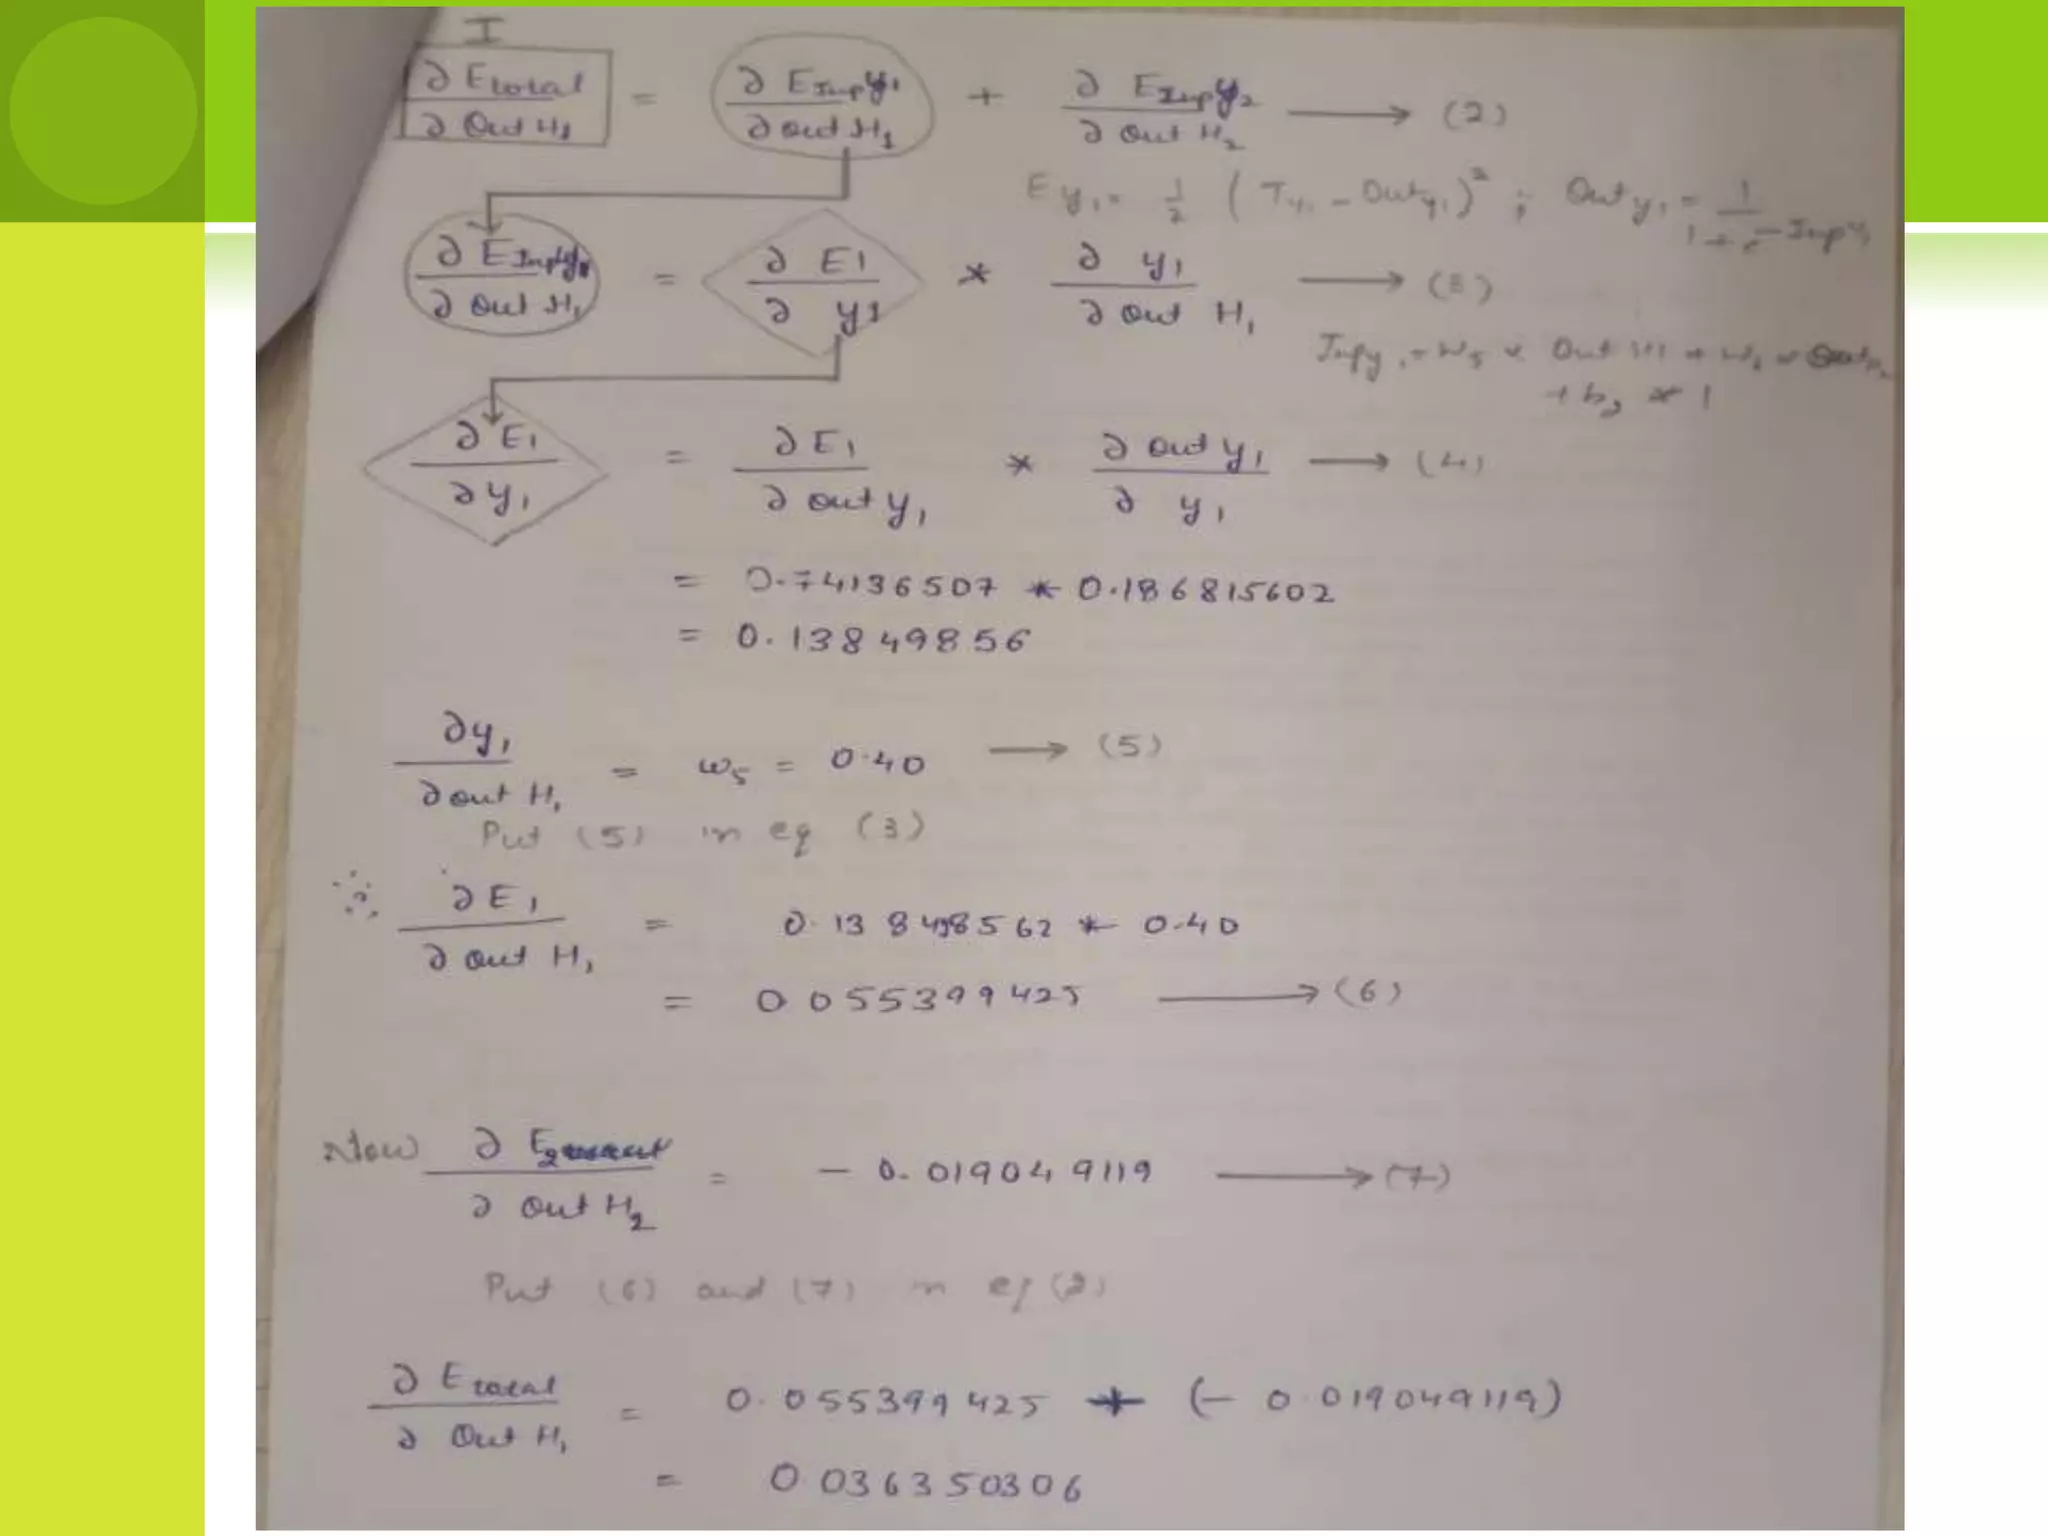 I
∂ Etotal / ∂ Out H1 = ∂ EInpy1 / ∂ out H1 + ∂ EInpy2 / ∂ out H2 → (2)
Ey1 = 1/2 ( Ty1 - Outy1 )² ; Out y1 = 1 / 1 + e - Inpy1
∂ EInpy1 / ∂ out H1 = ∂ E1 / ∂ y1 * ∂ y1 / ∂ out H1 → (3)
Inpy1 = W5 × Out H1 +
+ b2 * 1
∂ E1 / ∂ y1 = ∂ E1 / ∂ out y1 * ∂ out y1 / ∂ y1 → (4)
= 0.74136507 * 0.186815602
= 0.13849856
∂y1 / ∂ out H1 = w5 = 0.40 → (5)
Put (5) in eq (3)
∂ E1 / ∂ out H1 = 0.138498562 * 0.40
= 0.055399425 → (6)
Now ∂ E2 / ∂ out H2 = - 0.019049119 → (7)
Put (6) and (7) in eq (2)
∂ Etotal / ∂ Out H1 = 0.055399425 + (- 0.019049119)
= 0.036350306